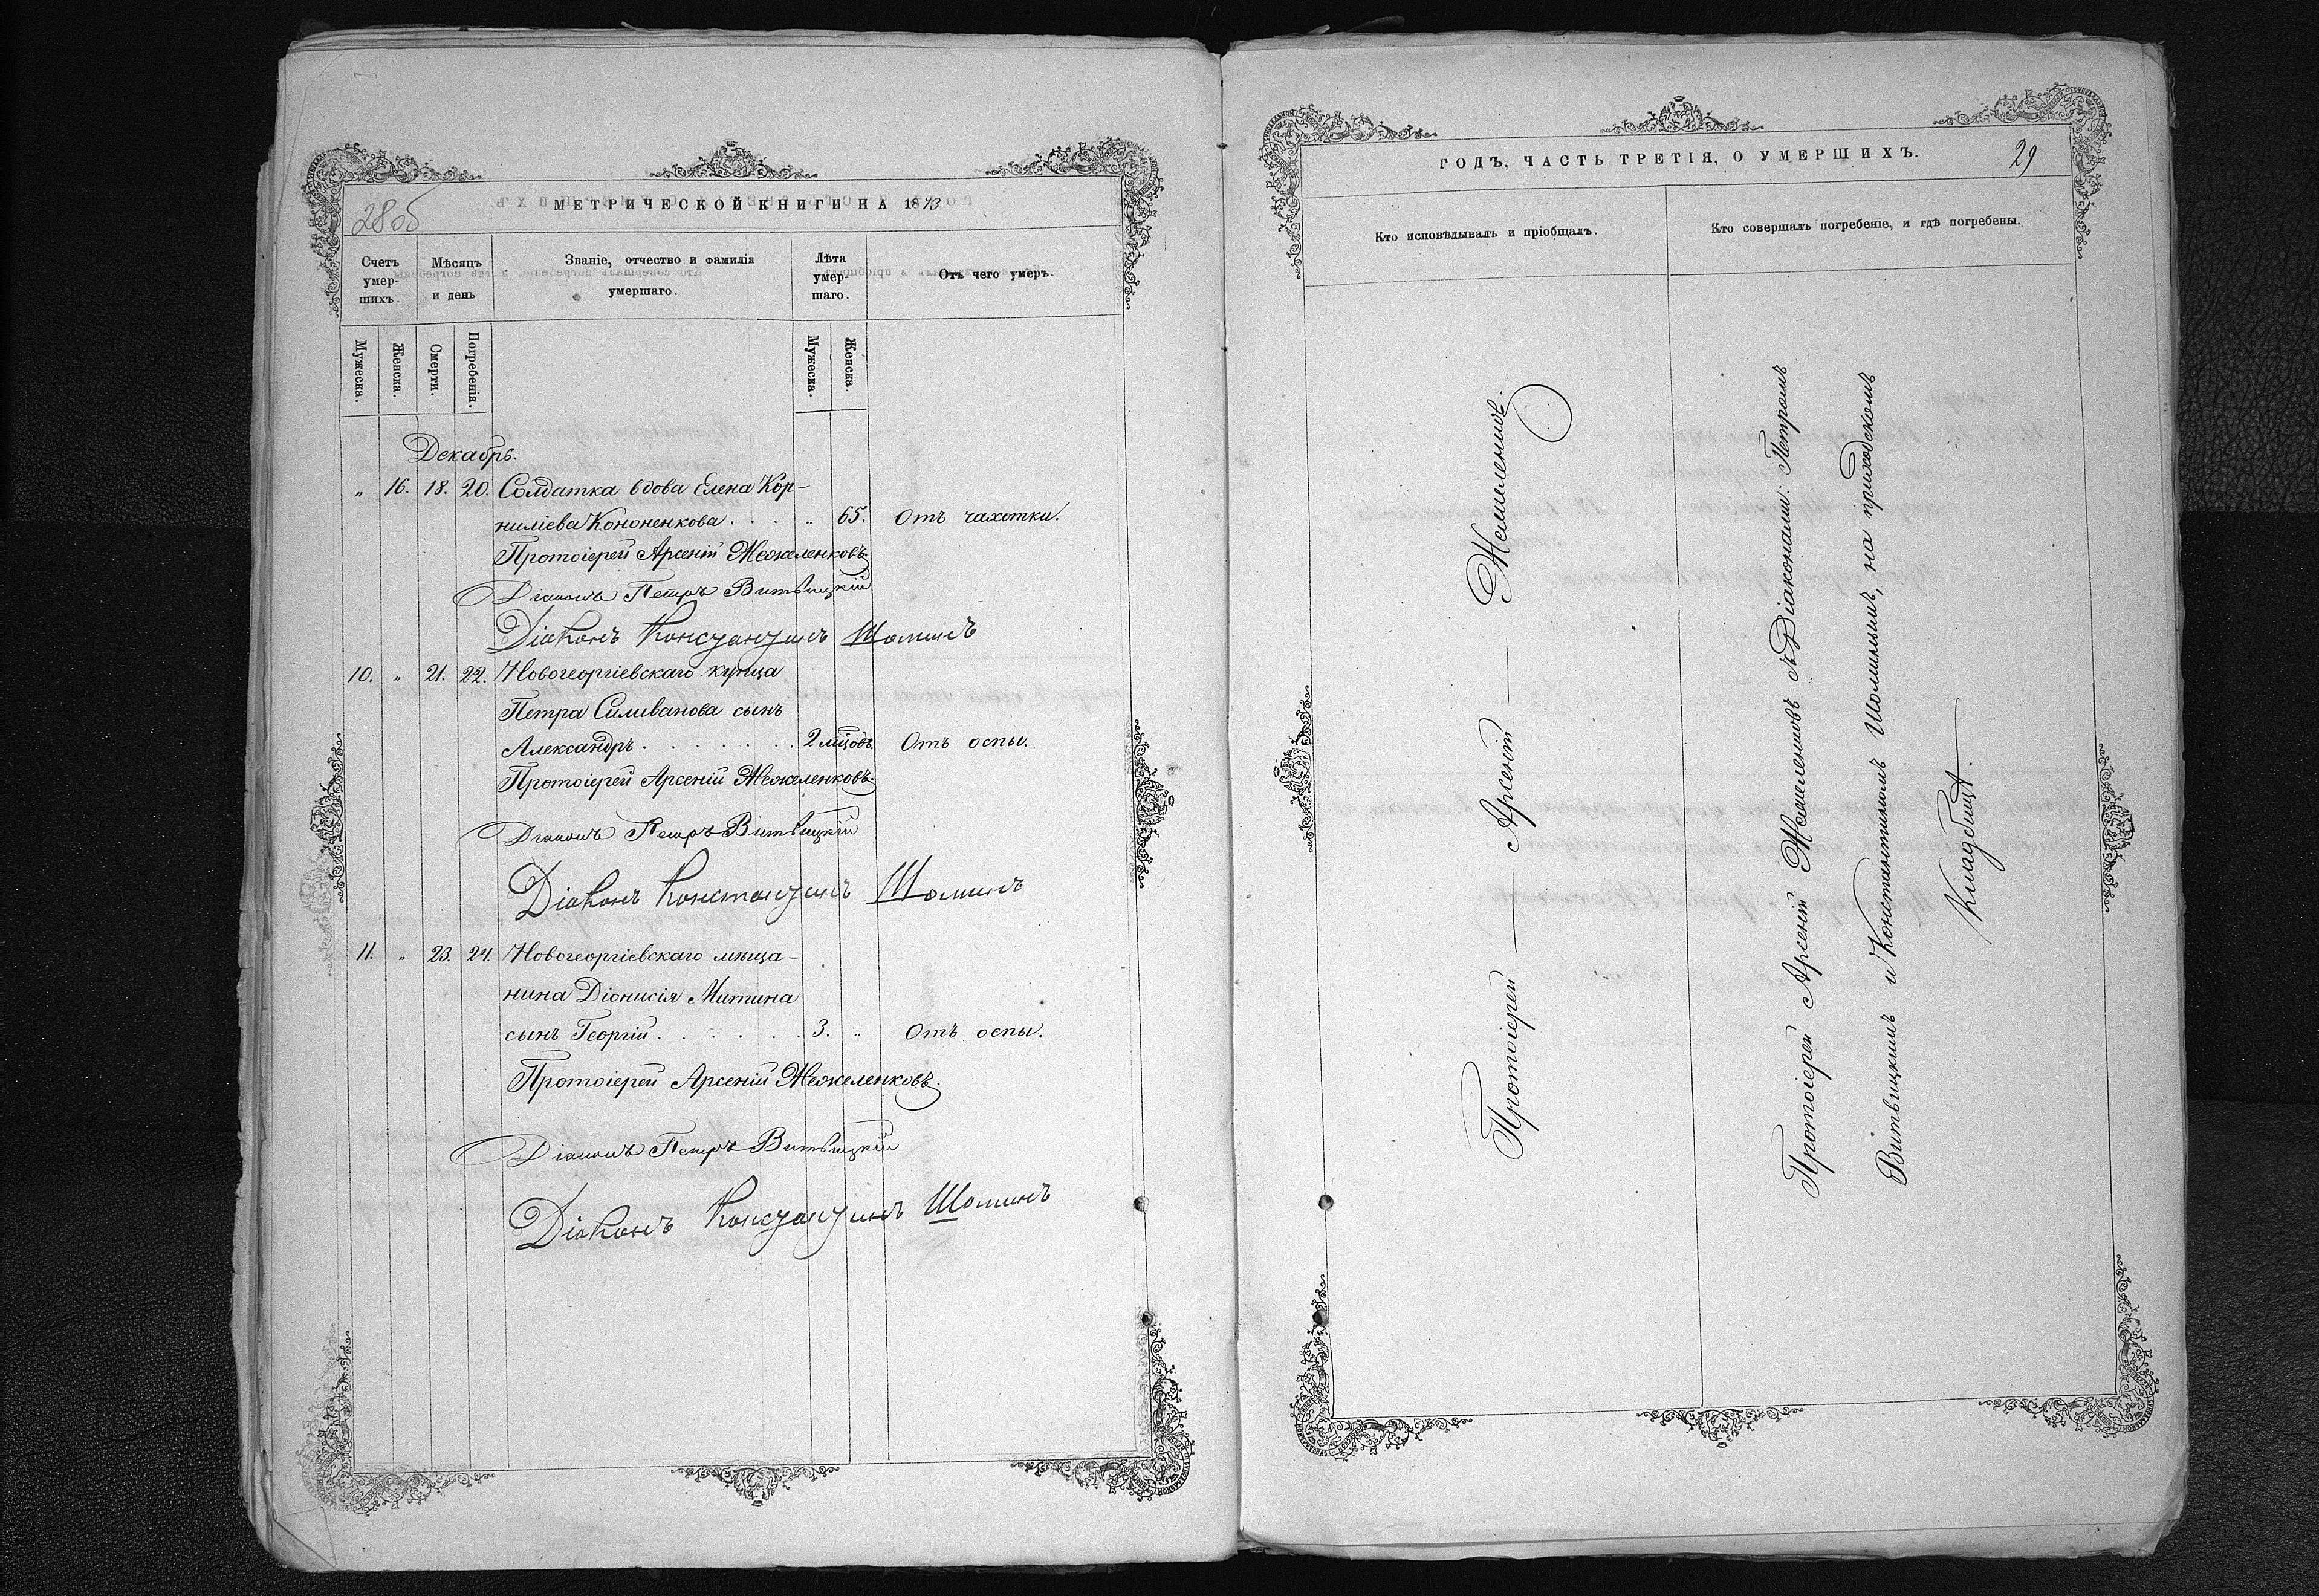 28 об
МЕТРИЧЕСКОЙ КНИГИ НА 1873
Счетъ умер-шихъ.
Мѣсяцъ и день
Званіе, отчество и фамилія умершаго.
Лѣта умер-шаго.
Отъ чего умеръ.
Мужеска.
Женска.
Смерти.
Погребенія.
Мужеска.
Женска.
Декабрь.
„ 16. 18. 20. Солдатка вдова Елена Кор-
ниліева Кононенкова . . . „ 65. Отъ чахотки.
Протоіерей Арсеній Желеленковъ
Діаконъ Петръ Витвицкій
Діаконъ Константинъ Шоминъ
10. „ 21. 22. Новогеоргіевскаго купца
Петра Силиванова сынъ
Александръ . . . . . . . 2 мѣсцовъ. Отъ оспы.
Протоіерей Арсеній
Діаконъ Петръ Витвицкій
Діаконъ Константинъ Шоминъ
11. „ 23. 24. Новогеоргіевскаго мѣща-
нина Діонисія Митина
сынъ Георгій . . . . . . 3. „ Отъ оспы.
Протоіерей Арсеній
Діаконъ Петръ Витвицкій
Діаконъ Константинъ Шоминъ
ГОДЪ, ЧАСТЬ ТРЕТІЯ, О УМЕРШИХЪ.
29
Кто исповѣдывалъ и пріобщалъ.
Кто совершалъ погребеніе, и гдѣ погребены.
Протоіерей — Арсеній —
Протоіерей Арсеній съ Діаконами: Петромъ
Витвицкимъ и Константиномъ Шоминымъ, на приходскомъ
кладбищѣ.